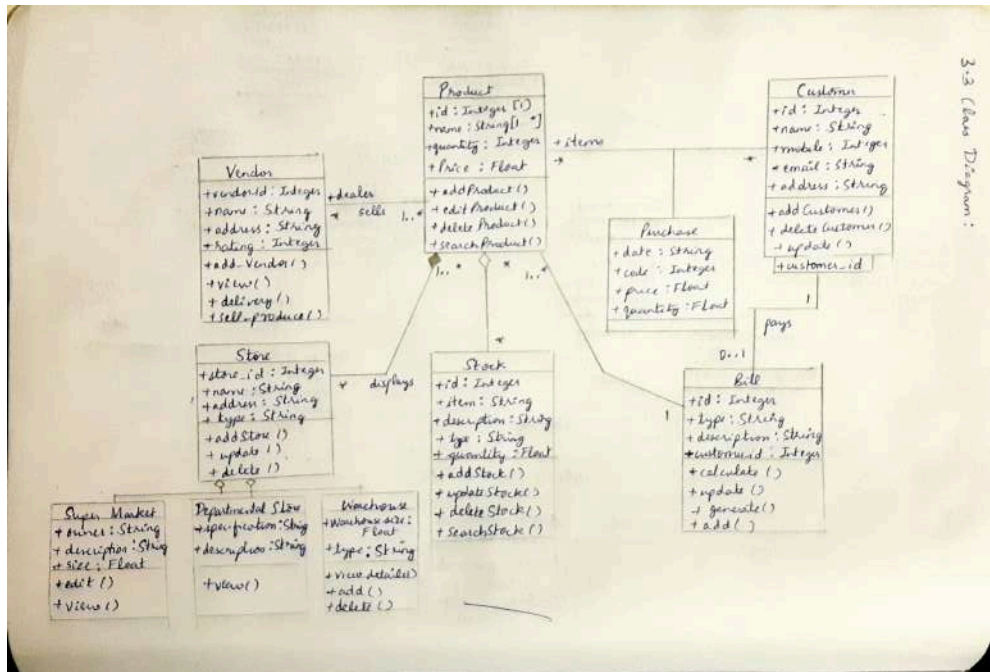 3.3 Class Diagram :
Product
+id : Integer [1]
+name : String[1 *]
+quantity : Integer
+Price : Float
+addProduct()
+edit Product()
+delete Product()
+searchProduct()
Customer
+id : Integer
+name : String
+mobile : Integer
+email : String
+address : String
+add Customer()
+delete Customer()
+update ()
+customer_id
+items
*
*
Vendor
+vendorid : Integer
+name : String
+address : String
+rating : Integer
+add_Vendor()
+view()
+delivery()
+sell_produce()
+dealer
* sells 1..*
Purchase
+date : String
+code : Integer
+price : Float
+quantity : Float
1..*
*
1..*
1
pays
0..1
Store
+store_id : Integer
+name : String
+address : String
+type : String
+addStore ()
+update ()
+delete ()
* displays
*
Stock
+id : Integer
+item : String
+description : String
+type : String
+quantity : Float
+addStock()
+updateStock()
+deleteStock()
+searchStock()
1
Bill
+id : Integer
+type : String
+description : String
+customerid : Integer
+calculate ()
+update ()
+generate()
+add()
Super Market
+owner : String
+description : String
+size : Float
+edit ()
+view()
Departmental Store
+specification : String
+description : String
+view()
Warehouse
+Warehouse size :
Float
+type : String
+view details()
+add()
+delete ()